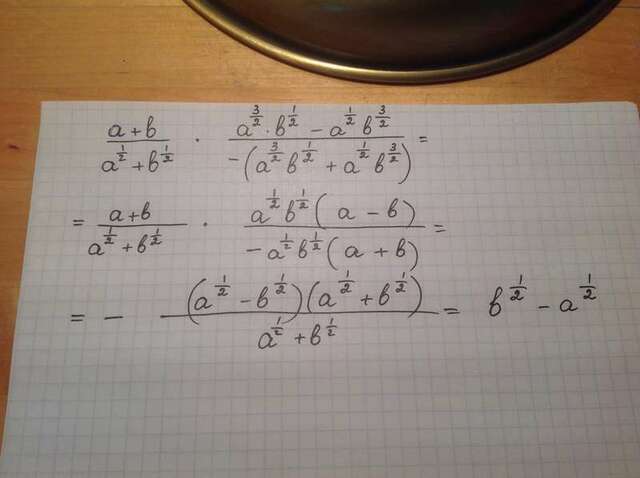 (a+в)/(a^(1/2)+в^(1/2)) · (a^(3/2)·в^(1/2) − a^(1/2)в^(3/2))/(−(a^(3/2)в^(1/2) + a^(1/2)в^(3/2))) =
= (a+в)/(a^(1/2)+в^(1/2)) · (a^(1/2)в^(1/2)(a − в))/(−a^(1/2)в^(1/2)(a + в)) =
= − ((a^(1/2) − в^(1/2))(a^(1/2) + в^(1/2)))/(a^(1/2) + в^(1/2)) = в^(1/2) − a^(1/2)